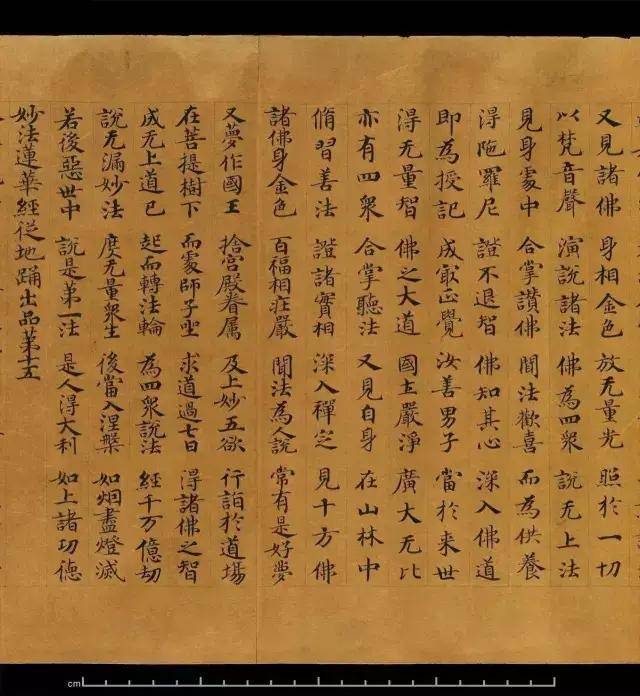 又見諸佛 身相金色 放无量光 照於一切
以梵音聲 演說諸法 佛為四衆 說无上法
見身處中 合掌讚佛 聞法歡喜 而為供養
得陁羅尼 證不退智 佛知其心 深入佛道
即為授記 成㝡正覺 汝善男子 當於来世
得无量智 佛之大道 國土嚴淨 廣大无比
亦有四衆 合掌聽法 又見自身 在山林中
脩習善法 證諸實相 深入禪定 見十方佛
諸佛身金色 百福相莊嚴 聞法為人說 常有是好夢
又夢作國王 捨宮殿眷属 及上妙五欲 行詣於道場
在菩提樹下 而處師子座 求道過七日 得諸佛之智
成无上道已 起而轉法輪 為四衆說法 經千万億劫
說无漏妙法 度无量衆生 後當入涅槃 如烟盡燈滅
若後惡世中 說是第一法 是人得大利 如上諸功德
妙法蓮華經從地踊出品第十五
cm